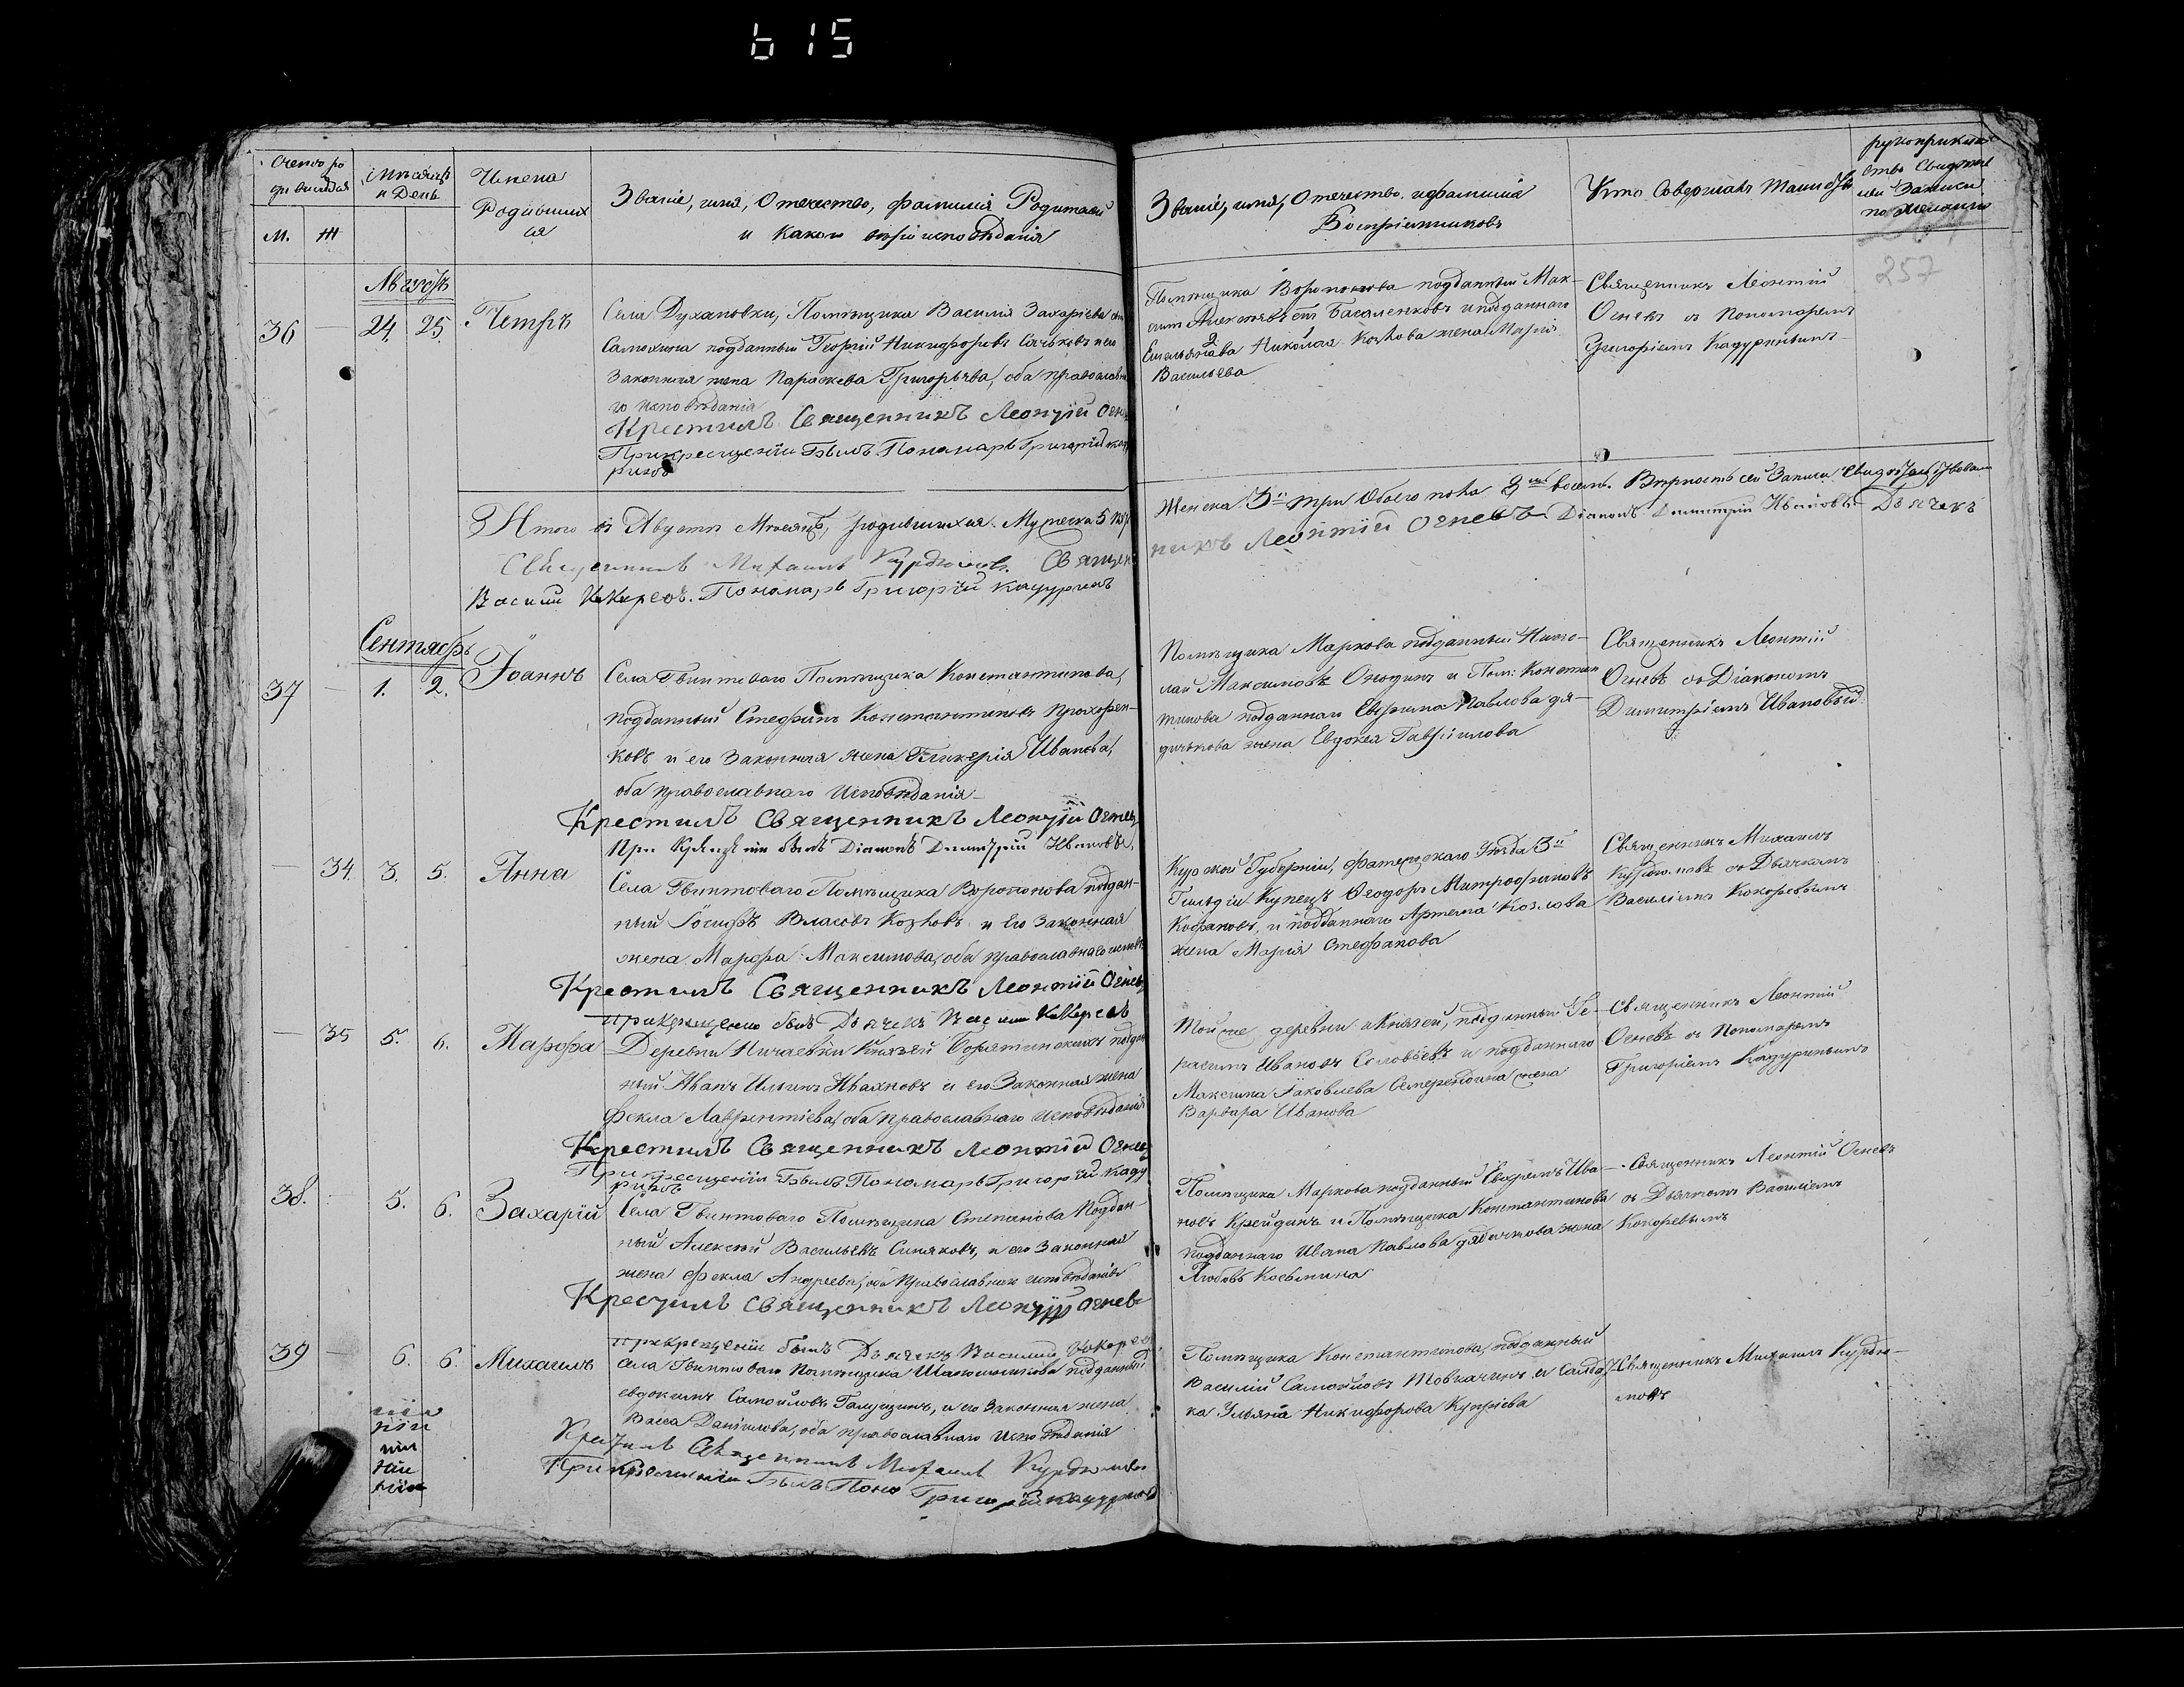 615
Счетъ ро
дившихся
Мѣсяцъ
и День
Имена
Родивших
ся
Званіе, имя, Отечество, фамилія Родителей
и какого вѣроисповѣданія
М. Ж
Званіе, имя, Отечество и фамилія
Воспріемниковъ
Кто Совершалъ Таинство
рукоприклад
ство Свидѣте
лей Записи
по желанію
257
Августъ
36 24. 25. Петръ
Села Духановки, Помѣщика Василія Захаріева сына
Самохина подданный Георгій Никифоровъ и его
Законная жена Параскева Григорьева, оба православна
го исповѣданія
Крестилъ Священникъ Леонтій Огнев
При крещеніи былъ Пономарь Григорій Каду
ринъ
Помѣщика Воропонова подданный Мак-
сим Алексѣевъ и подданнаго
Емельянова Николая Козлова жена Марія
Васильева
Священникъ Леонтій
Огневъ съ Пономаремъ
Григоріемъ Кадуринымъ
Итого въ Августѣ Мѣсяцѣ, родившихся. Мужеска 5 пять
Женска 3и три Обоего пола 8мь восемь. Вѣрность сей Записи Свидѣтельствовали
Священникъ Михаилъ Курдюмовъ. Священ
никъ Леонтій Огневъ Діаконъ Димитрій Ивановъ Дьячекъ
Василій Кокорев. Пономарь Григорій Кадуринъ
Сентябрь
37 1. 2. Іоаннъ
Села Гвинтоваго Помѣщика Константинова,
подданный Стефанъ Константиновъ Прохорен-
ковъ и его Законная жена Гликерія Иванова,
оба православнаго Исповѣданія
Крестилъ Священникъ Леонтій Огнев
При Крещеніи былъ Діаконъ Димитрій Ивановъ
Помѣщика Маркова подданный Нико-
лай Максимовъ и Пом: Констан
тинова подданнаго Павлова дя-
дичкова жена Евдокія Гавріилова
Священникъ Леонтій
Огневъ съ Діакономъ
Димитріемъ Ивановый
34. 3. 5. Анна
Села Гвинтоваго Помѣщика Воропонова поддан-
ный Іосифъ Власовъ Козловъ и его Законная
жена Марфа Максимова, оба православнаго исповѣ
Крестилъ Священникъ Леонтій Огнев
При крещеніи былъ Дьячекъ Василій Кокоревъ
Курской Губерніи, Фатежскаго Уѣзда 3й
Гильдіи Купецъ Ѳеодоръ Митрофановъ
и подданнаго Артема Козлова
жена Марія Стефанова
Священникъ Михаилъ
Курдюмовъ съ Дьячкомъ
Василіемъ Кокоревымъ
35 5. 6. Марфа
Деревни Ничаевки Князей Борятинскихъ поддан
ный Иванъ Ильинъ Ивахновъ и его Законная жена
Фекла Лаврентіева, оба православнаго Исповѣданія
Крестилъ Священникъ Леонтій Огнев
При крещеніи былъ Пономарь Григорій Каду
ринъ
Той же деревни и Князей, подданный Ге-
расимъ Ивановъ Соловьевъ и подданнаго
Максима Іаковлева жена
Варвара Иванова
Священникъ Леонтій
Огневъ съ Пономаремъ
Григоріемъ Кадуринымъ
38. 5. 6. Захарій
Села Гвинтоваго Помѣщика Степанова Поддан-
ный Алексѣй Васильевъ Синяковъ, и его Законная
жена Фекла Андреева, оба Православнаго исповѣданія
Крестилъ Священникъ Леонтій Огневъ
При крещеніи былъ Дьячекъ Василій Кокорев
Помѣщика Маркова подданный Ива-
новъ Крейдинъ и Помѣщика Константинова
подданнаго Ивана Павлова дядичкова жена
Любовь Косьмина
Священникъ Леонтій Огневъ
съ Дьячкомъ Василіемъ
Кокоревымъ
39 6. 6. Михаилъ
Села Гвинтоваго Помѣщика подданный
Евдокимъ Самойловъ и его Законная жена
Васса Даніилова, оба православнаго Исповѣданія
Крестилъ Священникъ Михаилъ Курдюмовъ
При крещеніи былъ Поно Григорій Кадуринъ
Помѣщика Константинова, подданный
Василій Самойловъ Товкачинъ и Солдат
ка Ульяна Никифорова Купріева
Священникъ Михаилъ Курдю-
мовъ